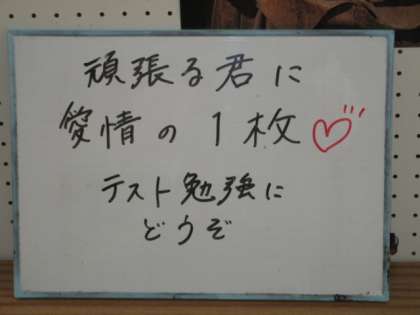 頑張る君に
愛情の1枚♡
テスト勉強に
どうぞ